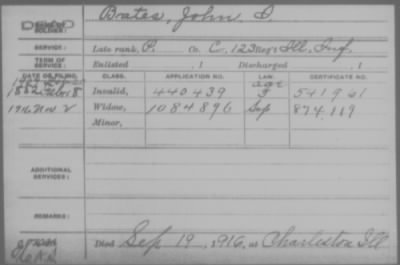 NAME OF SOLDIER: Boates, John I.
SERVICE: Late rank, P. Co. C, 123 Reg't Ill. Inf.
TERM OF SERVICE: Enlisted , 1 Discharged , 1
DATE OF FILING. CLASS. APPLICATION NO. LAW. CERTIFICATE NO.
age
1882 Feb 8 Invalid, 440439 541961
1916 Nov 2 Widow, 1084896 Sep 874.119
Minor,
ADDITIONAL SERVICES:
REMARKS:
Died Sep 19, 1916, at Charleston Ill